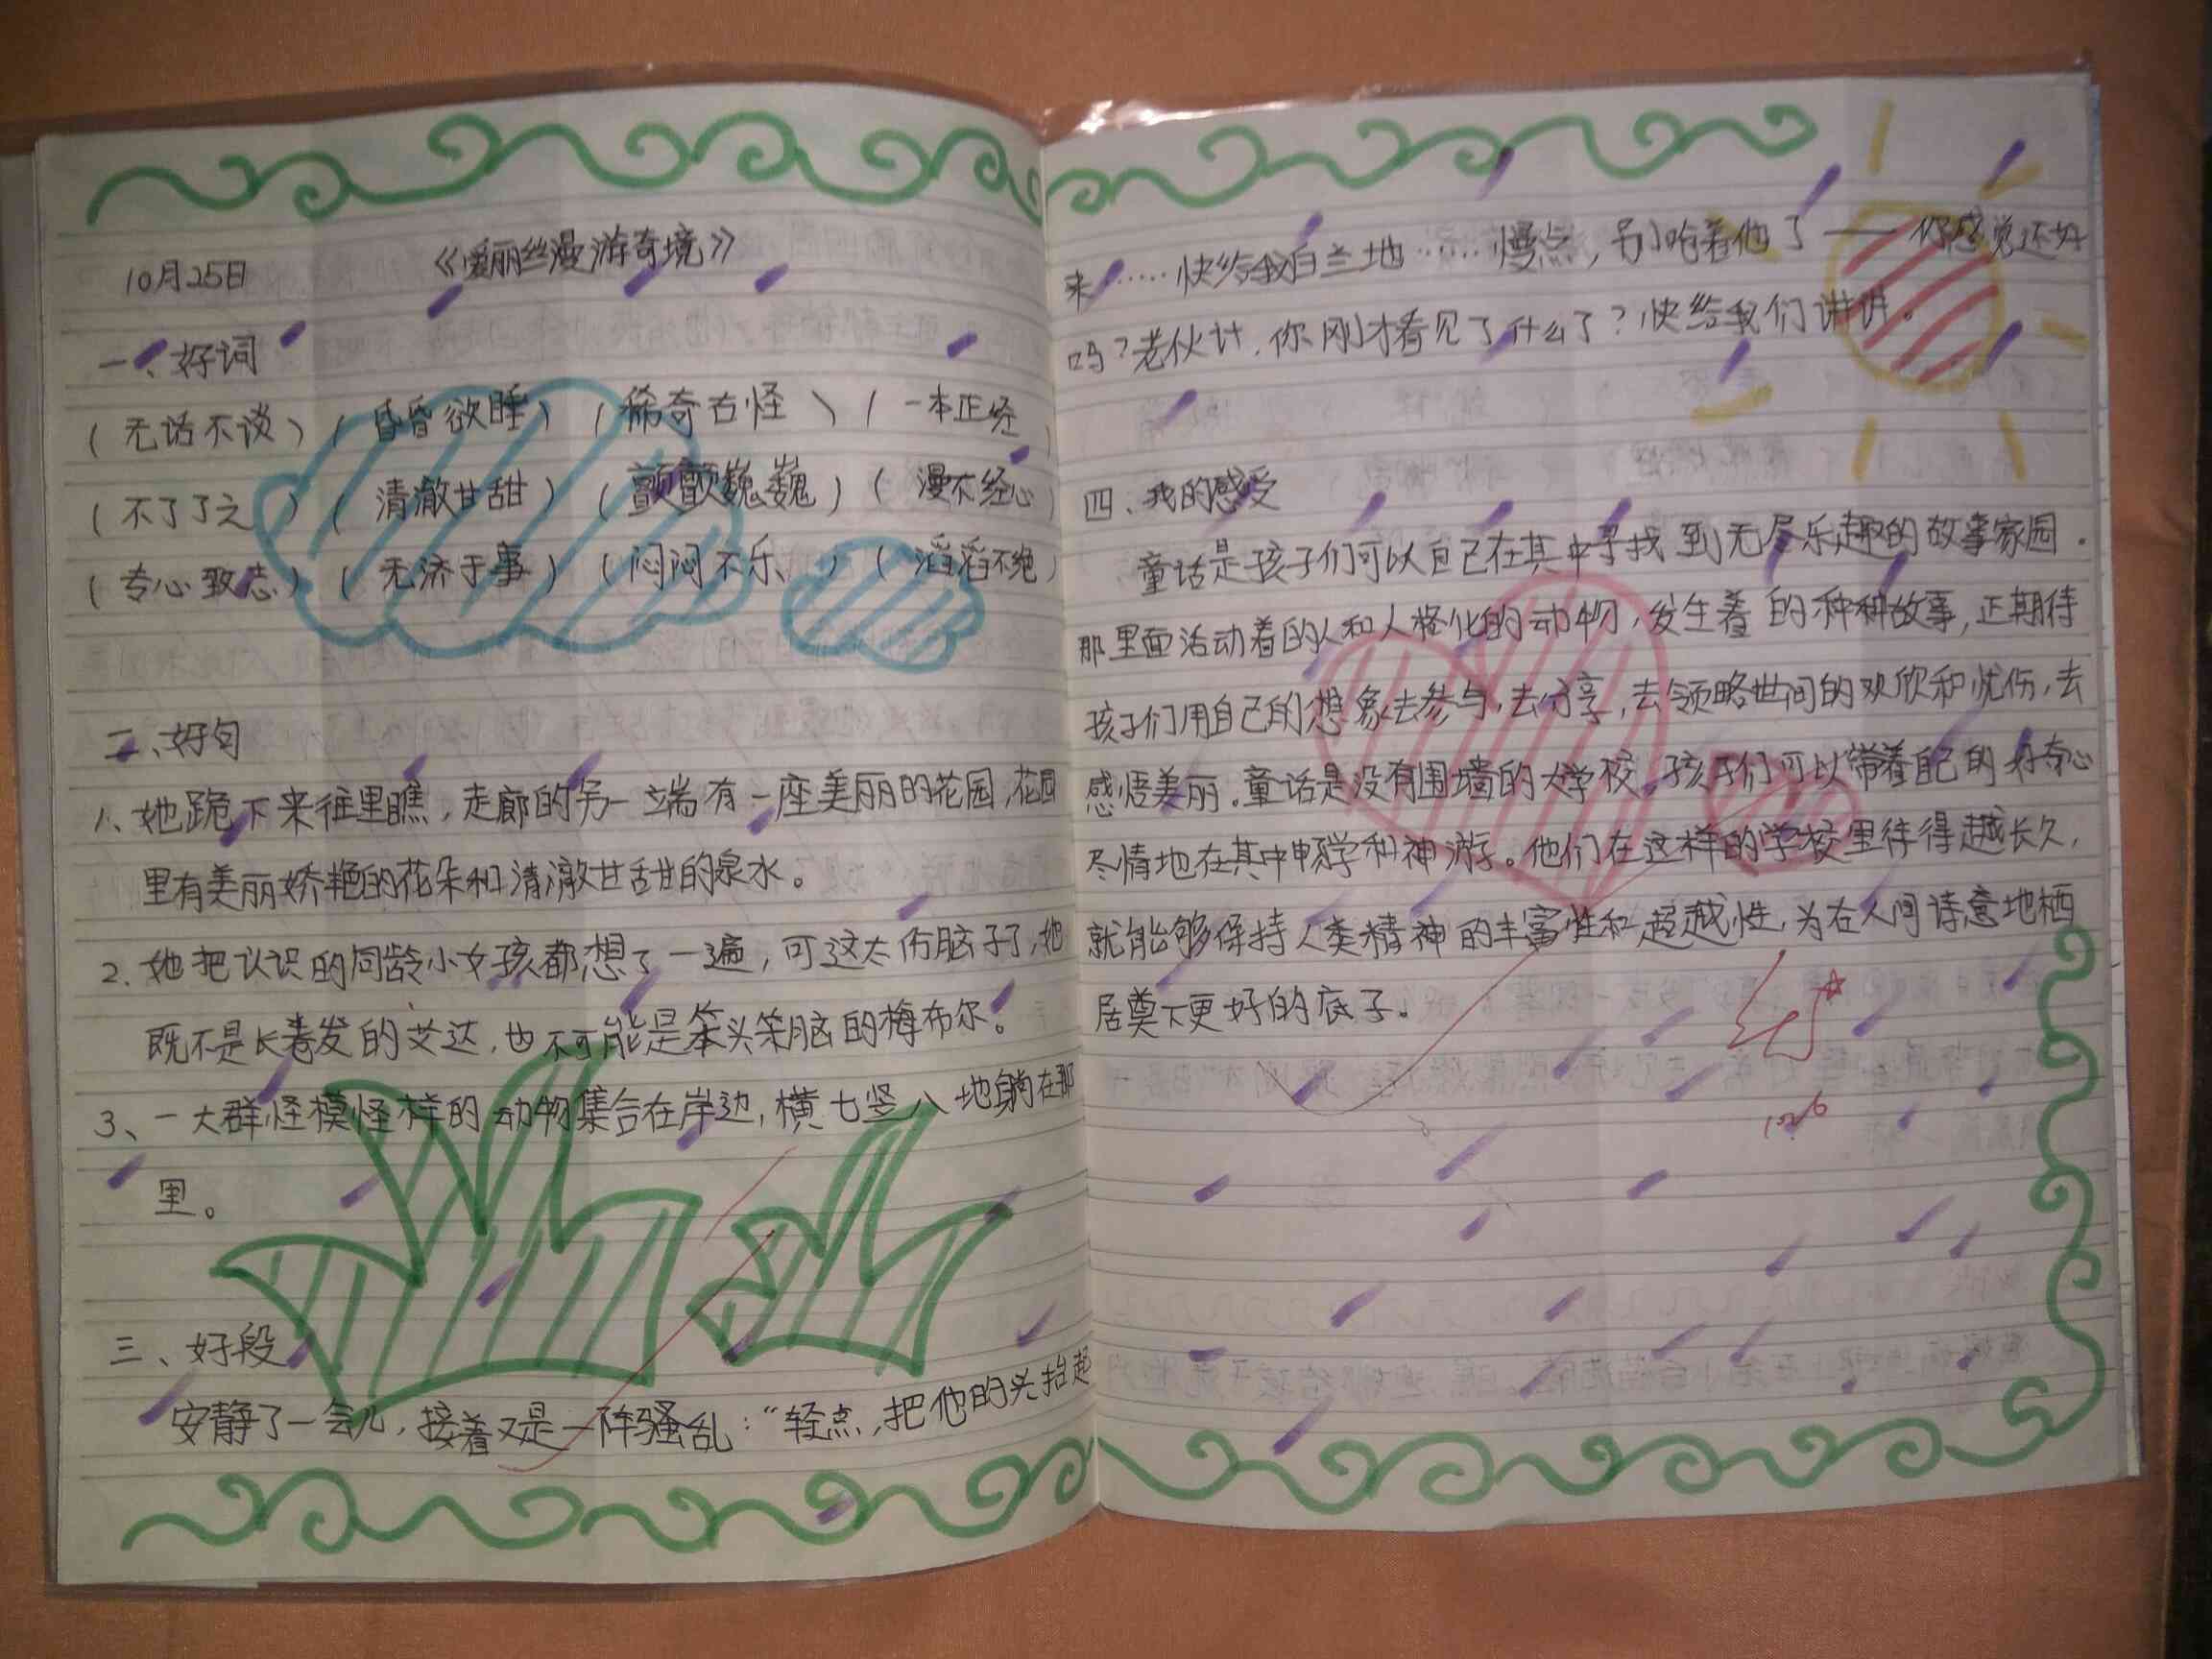 10月25日 《爱丽丝漫游奇境》
一、好词
(无话不谈) (昏昏欲睡) (稀奇古怪) (一本正经)
(不了了之) (清澈甘甜) (颤颤巍巍) (漫不经心)
(专心致志) (无济于事) (闷闷不乐) (滔滔不绝)
二、好句
1、她跪下来往里瞧，走廊的另一端有一座美丽的花园，花园
里有美丽娇艳的花朵和清澈甘甜的泉水。
2、她把认识的同龄小女孩都想了一遍，可这太伤脑子了，她
既不是长卷发的艾达，也不可能是笨头笨脑的梅布尔。
3、一大群怪模怪样的动物集合在岸边，横七竖八地躺在那
里。
三、好段
安静了一会儿，接着又是一阵骚乱：“轻点，把他的头抬起
来……快给我白兰地……慢点，别呛着他了——你感觉还好
吗？老伙计，你刚才看见了什么了？快给我们讲讲。
四、我的感受
童话是孩子们可以自己在其中寻找到无尽乐趣的故事家园．
那里面活动着的人和人格化的动物，发生着的种种故事，正期待
孩子们用自己的想象去参与，去分享，去领略世间的欢欣和忧伤，去
感悟美丽。童话是没有围墙的大学校，孩子们可以带着自己的好奇心
尽情地在其中畅学和神游。他们在这样的学校里待得越长久，
就能够保持人类精神的丰富性和超越性，为在人间诗意地栖
居奠下更好的底子。